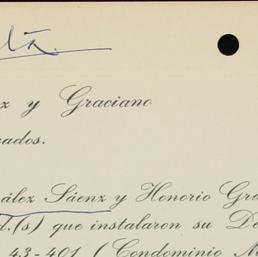 z y Graciano
ados.
ález Sáenz y Honorio Gra
d.(s) que instalaron su De
43-401 ( Condominio M